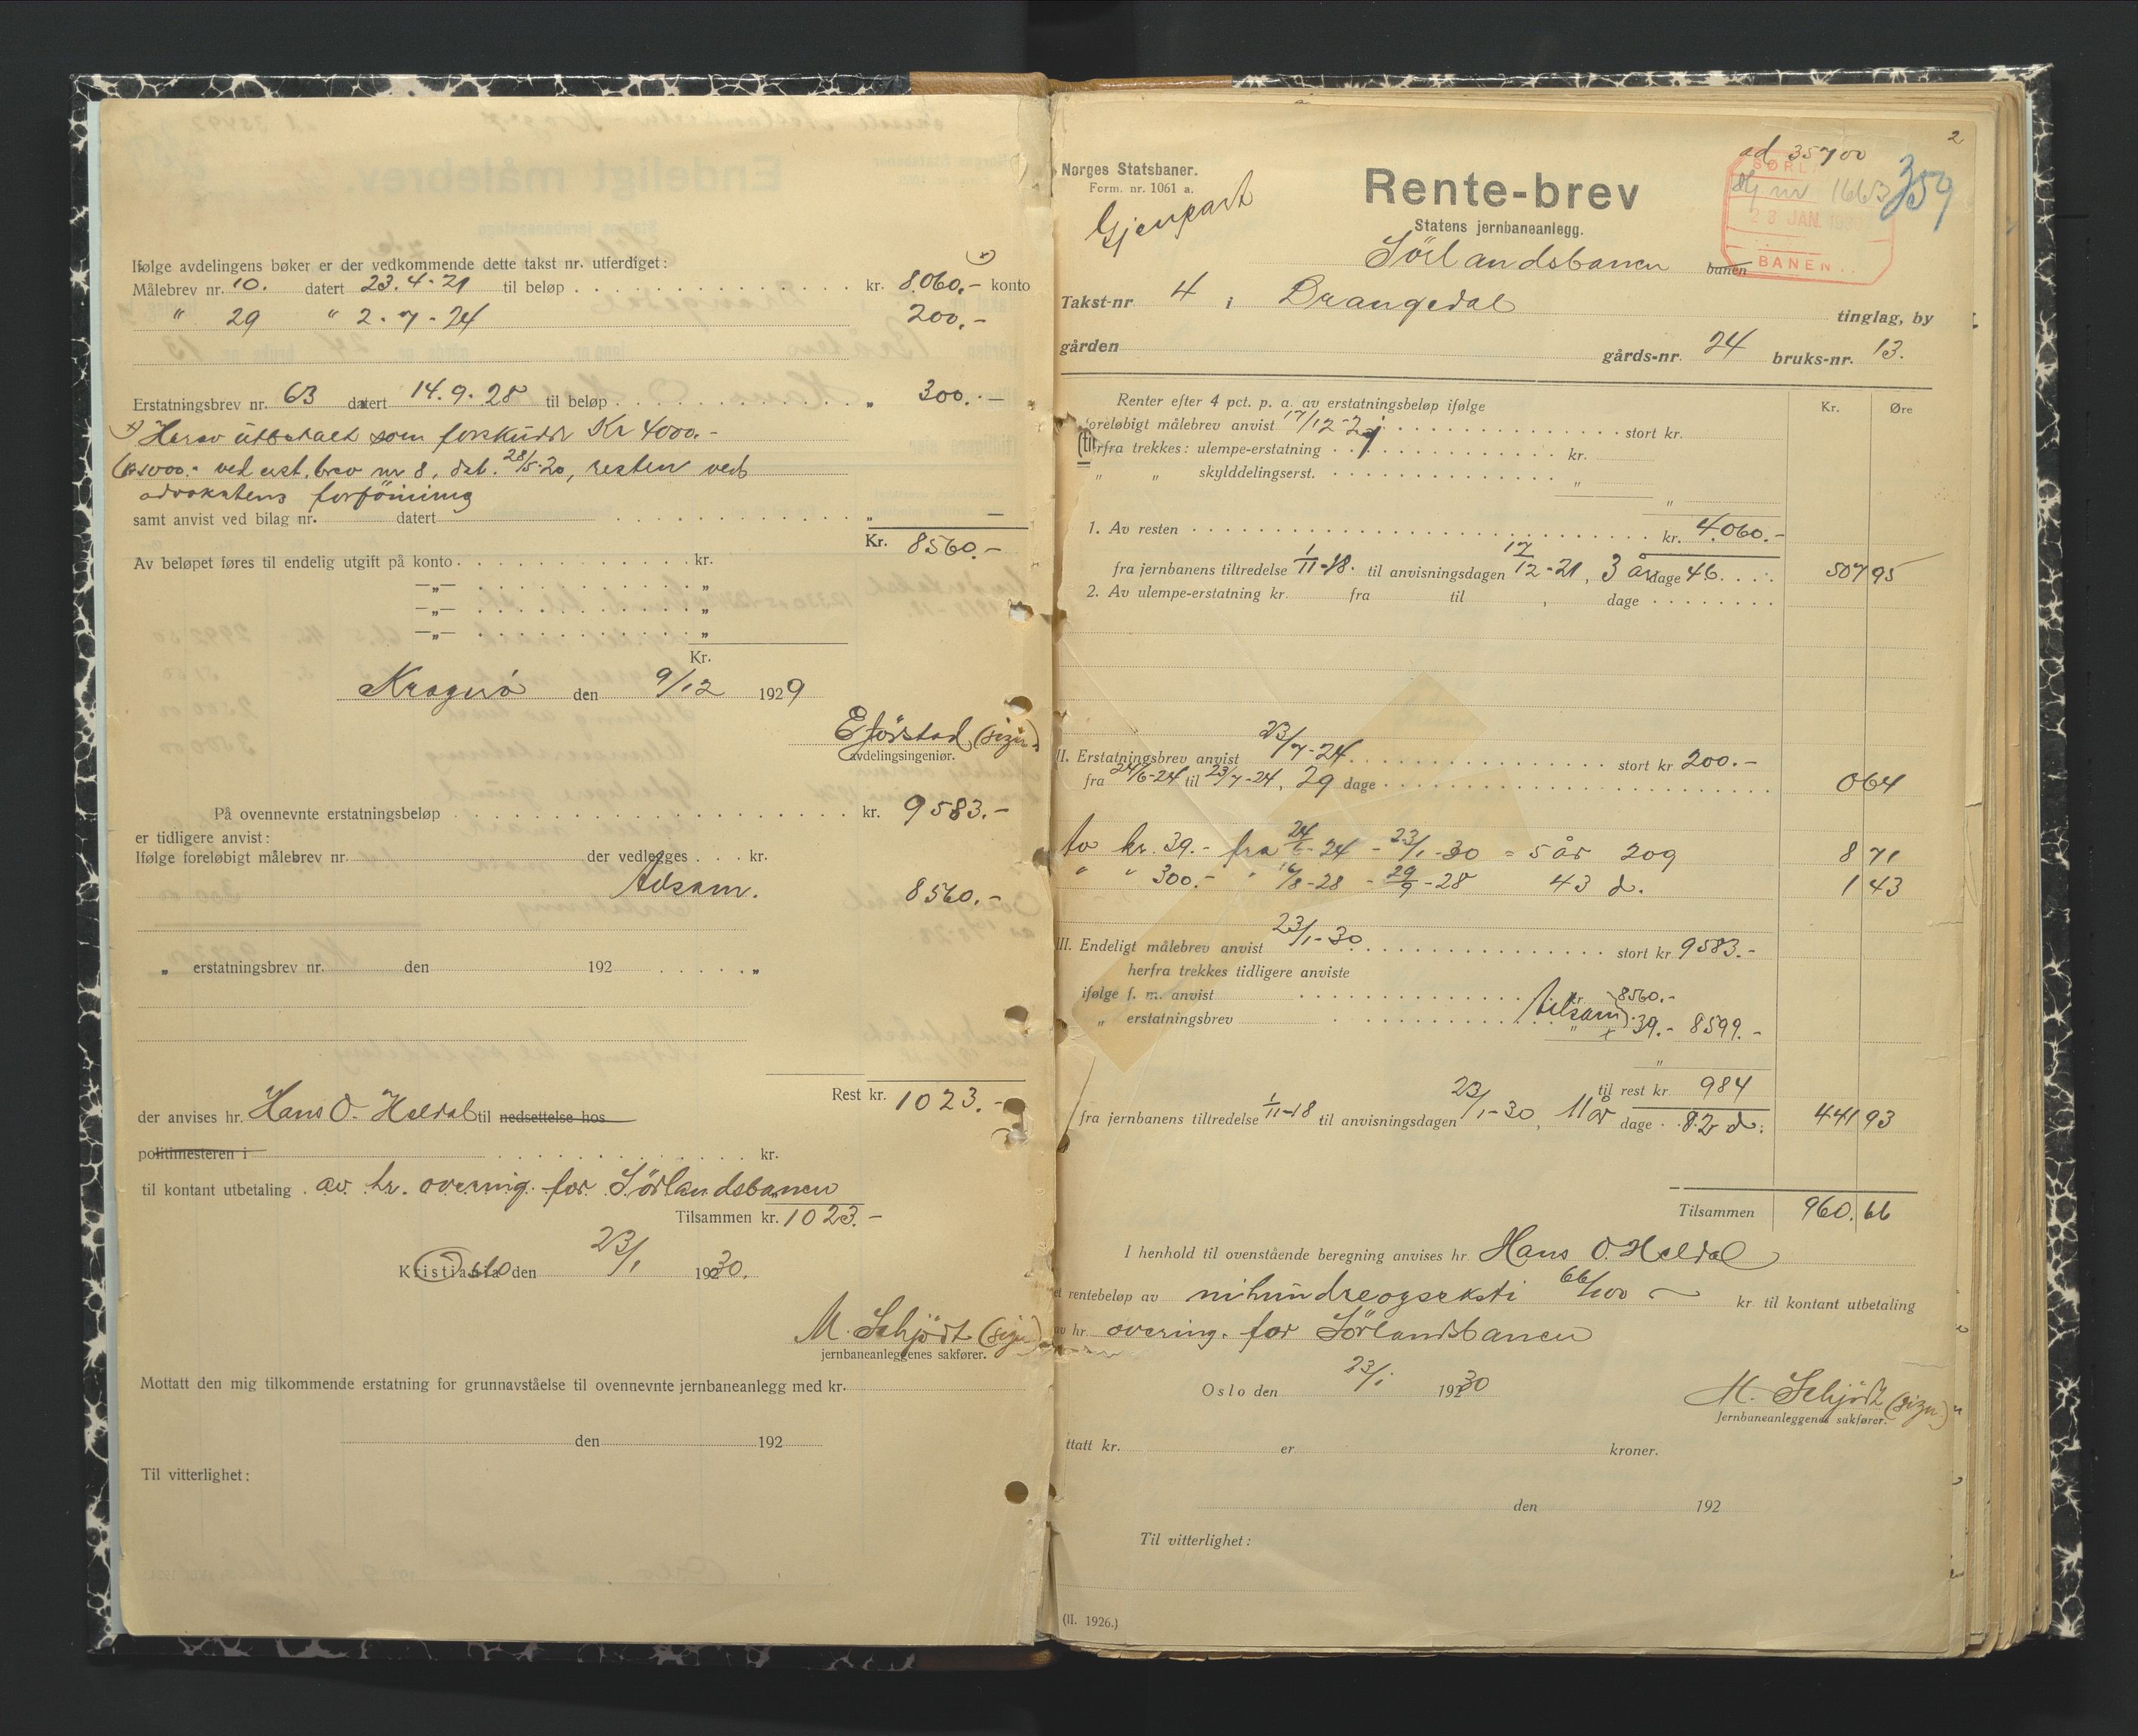 Ifølge avdelingens bøker er der vedkommende dette takst nr. utferdiget:
Målebrev nr. 10. datert 23.4-21 til beløp kr. 8.060.- konto
" 29 " 2-7-24 200.-
Erstatningsbrev nr. 63 datert 14.9.28 til beløp " 300.-
x) Herav utbetalt som forskudd Kr 4000.-
(kr 1000.- ved erst.brev nr 8, dat. 28/5-20, resten ved
advokatens forföining
samt anvist ved bilag nr. datert " —
Kr. 8560.-
Av beløpet føres til endelig utgift på konto kr.
—„— „
—„— „
—„— „
Kr.
Kragerö den 9/12 1929
E Jörstad (sign.)
avdelingsingeniør.
På ovennevnte erstatningsbeløp kr. 9583.-
er tidligere anvist:
Ifølge foreløbigt målebrev nr. der vedlegges kr.
tilsam. 8560.-
„ erstatningsbrev nr. den 192 „
Rest kr. 1023.-
der anvises hr. Hans O. Heldal til nedsettelse hos
politimesteren i kr.
til kontant utbetaling av hr. overing. for Sörlandsbanen
Tilsammen kr. 1023.-
Kristiania Oslo den 23/1 1930.
M. Schjödt (sign)
jernbaneanleggenes sakfører.
Mottatt den mig tilkommende erstatning for grunnavståelse til ovennevnte jernbaneanlegg med kr.
den 192
Til vitterlighet:
2
ad 35700
Norges Statsbaner.
Form. nr. 1061 a.
Gjenpart
Rente-brev
Statens jernbaneanlegg.
Sörlandsbanen banen
SØRL
nr 1663
23 JAN. 19
BANEN
359
Takst-nr 4 i Drangedal tinglag, by
gården gårds-nr. 24 bruks-nr. 13.
Renter efter 4 pct. p. a. av erstatningsbeløp ifølge Kr. Øre
foreløbigt målebrev anvist 17/12-21 stort kr.
herfra trekkes: ulempe-erstatning kr.
„ „ skylddelingserst. „
„
1. Av resten kr. 4.060.-
fra jernbanens tiltredelse 1/11-18. til anvisningsdagen 17/12-21, 3 år dage 46. 507 95
2. Av ulempe-erstatning kr. fra til , dage
II. Erstatningsbrev anvist 23/7-24 stort kr 200.-
fra 24/6-24 til 23/7-24, 29 dage 0 64
Av kr. 39.- fra 24/6-24 - 23/1-30 = 5 år 209 8 71
" " 300.- " /8-28 - 29/9-28 43 d. 1 43
III. Endeligt målebrev anvist 23/1-30 stort kr 9583.-
herfra trekkes tidligere anviste
ifølge f. m. anvist kr. 8560.-
„ erstatningsbrev tilsam. + 39.- 8599.-
„
til rest kr 984
fra jernbanens tiltredelse 1/11-18 til anvisningsdagen 23/1-30, 11 år dage 82 d. 441 93
Tilsammen 960.66
I henhold til ovenstående beregning anvises hr. Hans O. Heldal
et rentebeløp av nihundreogseksti 66/100 kr til kontant utbetaling
av hr. overing. for Sörlandsbanen
Oslo den 23/1 1930
M. Schjödt (sign)
Jernbaneanleggenes sakfører.
ttatt kr. er kroner.
den 192
Til vitterlighet:
(II. 1926.)